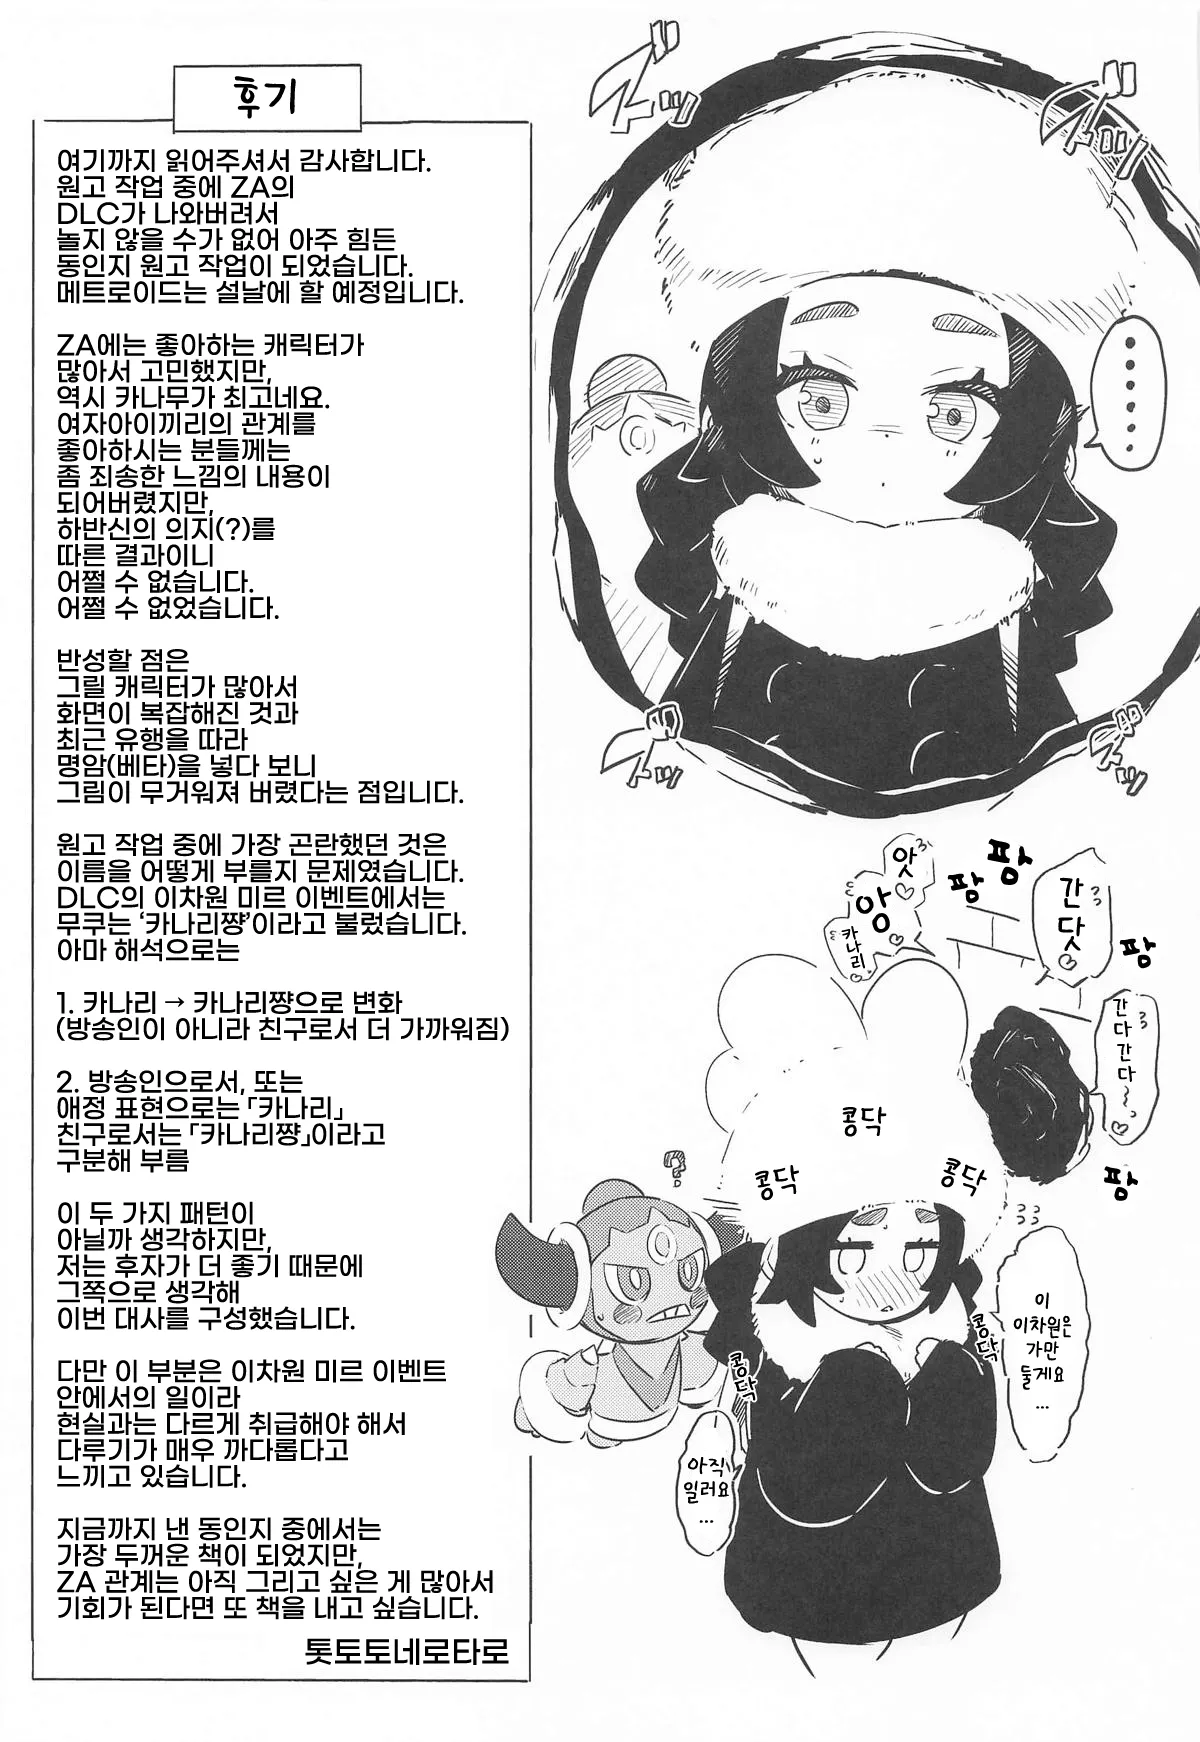 후기
여기까지 읽어주셔서 감사합니다.
원고 작업 중에 ZA의
DLC가 나와버려서
놀지 않을 수가 없어 아주 힘든
동인지 원고 작업이 되었습니다.
메트로이드는 설날에 할 예정입니다.
ZA에는 좋아하는 캐릭터가
많아서 고민했지만,
역시 카나무가 최고네요.
여자아이끼리의 관계를
좋아하시는 분들께는
좀 죄송한 느낌의 내용이
되어버렸지만,
하반신의 의지(?)를
따른 결과이니
어쩔 수 없습니다.
어쩔 수 없었습니다.
반성할 점은
그릴 캐릭터가 많아서
화면이 복잡해진 것과
최근 유행을 따라
명암(베타)을 넣다 보니
그림이 무거워져 버렸다는 점입니다.
원고 작업 중에 가장 곤란했던 것은
이름을 어떻게 부를지 문제였습니다.
DLC의 이차원 미르 이벤트에서는
무쿠는 ‘카나리쨩’이라고 불렀습니다.
아마 해석으로는
1. 카나리 → 카나리쨩으로 변화
(방송인이 아니라 친구로서 더 가까워짐)
2. 방송인으로서, 또는
애정 표현으로는 「카나리」
친구로서는 「카나리쨩」이라고
구분해 부름
이 두 가지 패턴이
아닐까 생각하지만,
저는 후자가 더 좋기 때문에
그쪽으로 생각해
이번 대사를 구성했습니다.
다만 이 부분은 이차원 미르 이벤트
안에서의 일이라
현실과는 다르게 취급해야 해서
다루기가 매우 까다롭다고
느끼고 있습니다.
지금까지 낸 동인지 중에서는
가장 두꺼운 책이 되었지만,
ZA 관계는 아직 그리고 싶은 게 많아서
기회가 된다면 또 책을 내고 싶습니다.
톳토토네로타로
ズズッ
ズズッ
……
ズズッ
ズズッ
앗♡
앙♡
카나리♡
팡
팡
간닷♡
팡
간다간다~♡
팡
콩닥
콩닥
콩닥
?
이
이차원은
가만
둘게요
…
콩닥
콩닥
아직
일러요
…